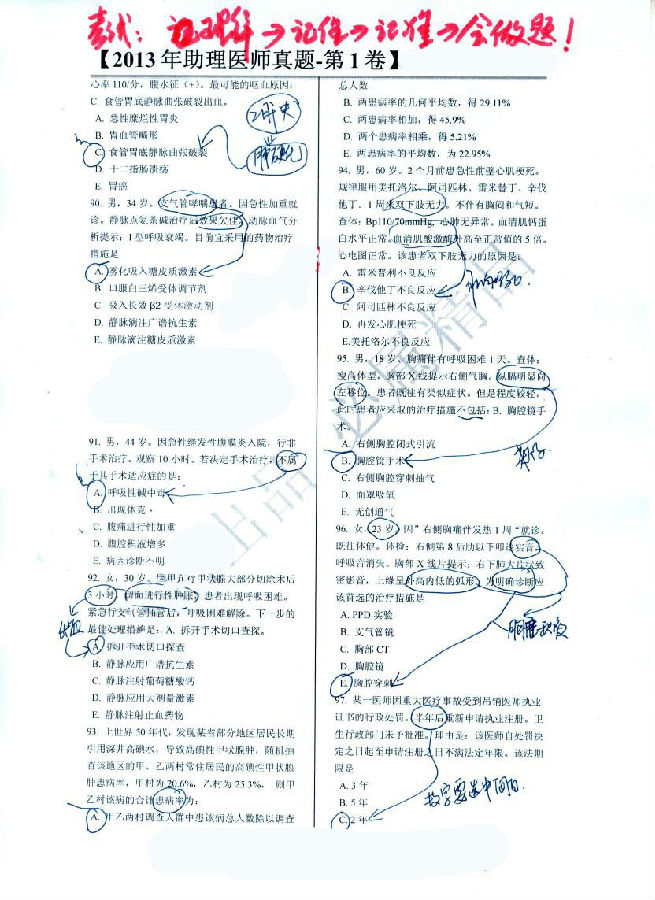 考试: 理解→记住→记准→会做题!
【2013年助理医师真题-第1卷】
心率110/分，腹水征（+），最可能的呕血原因：
C. 食管胃底静脉曲张破裂出血。
A. 急性糜烂性胃炎
B. 胃血管畸形
C. 食管胃底静脉曲张破裂
D. 十二指肠溃疡
E. 胃癌
肝硬化
90. 男，34岁，支气管哮喘患者，因急性加重就
诊，静脉点氨茶碱治疗后效果欠佳，动脉血气分
析提示：I型呼吸衰竭。目前宜采用的药物治疗
措施是
A. 雾化吸入糖皮质激素
B. 口服白三烯受体调节剂
C. 吸入长效β2受体激动剂
D. 静脉滴注广谱抗生素
E. 静脉滴注糖皮质激素
91. 男，44岁。因急性继发性腹膜炎入院，行非
手术治疗。观察10小时。若决定手术治疗，不属
于其手术适应症的是：
A. 呼吸性碱中毒
B. 出现休克
C. 腹痛进行性加重
D. 腹腔积液增多
E. 病因诊断不明
92. 女，30岁。因甲亢行甲状腺大部分切除术后
5小时，颈前进行性肿胀，患者出现呼吸困难。
紧急行支气管插管后，呼吸困难解除。下一步的
最佳处理措施是：A. 拆开手术切口探查。
A. 拆开手术切口探查
B. 静脉应用广谱抗生素
C. 静脉注射葡萄糖酸钙
D. 静脉应用大剂量激素
E. 静脉注射止血药物
93. 上世界50年代，发现某省部分地区居民长期
引用深井高碘水，导致高碘性甲状腺肿，随机抽
查该地区的甲、乙两村常住居民的高碘性甲状腺
肿患病率，甲村为20.6%，乙村为25.3%，则甲
乙村该病的合计患病率为：
A. 甲乙两村调查人群中患该病总人数除以调查
总人数
B. 两患病率的几何平均数，得29.11%
C. 两患病率相加，得45.9%
D. 两个患病率相乘，得5.21%
E. 两患病率的平均数，为22.95%
94. 男，60岁。2个月前患急性前壁心肌梗死。
规律服用美托洛尔、阿司匹林、雷米普丁、辛伐
他丁，1周来双下肢无力，不伴有胸闷和气短。
查体：Bp110/70mmHg，心肺无异常。血清肌钙蛋
白水平正常，血清肌酸激酶升高至正常值的5倍。
心电图正常。该患者双下肢无力的原因是：
A. 雷米普利不良反应
B. 辛伐他丁不良反应
C. 阿司匹林不良反应
D. 再发心肌梗死
E.美托洛尔不良反应
95. 男，18岁。胸痛伴有呼吸困难1天，查体：
瘦高体型。胸部X线提示右侧气胸，纵隔明显向
左移位，患者既往有类似症状，但是程度较轻。
此时患者应采取的治疗措施不包括：B. 胸腔镜手
术。
A. 右侧胸腔闭式引流
B. 胸腔镜手术
C. 右侧胸腔穿刺抽气
D. 面罩吸氧
E. 无创通气
96. 女，23岁。因"右侧胸痛伴发热1周"就诊。
既往体健。体检：右侧第8后肋以下叩诊实音，
呼吸音消失。胸部X线片提示：右下肺大片状致
密影，上缘呈外高内低的弧形，为明确诊断应
该首选的治疗措施是
A. PPD实验
B. 支气管镜
C. 胸部CT
D. 胸腔镜
E. 胸腔穿刺
97. 某一医师因重大医疗事故受到吊销医师执业
证书的行政处罚，半年后重新申请执业注册。卫
生行政部门未予批准。理由是：该医师自处罚决
定之日起至申请注册之日不满法定年限。该法期
限是
A. 3年
B. 5年
C. 2年
必属精品
出品